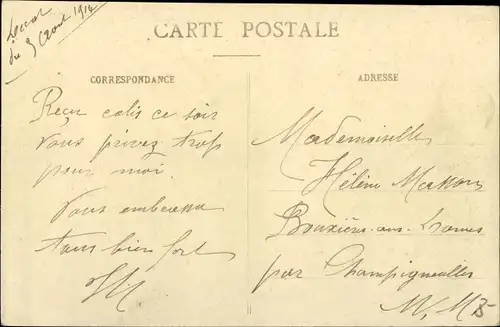 du 3 Août 1914
CARTE POSTALE
CORRESPONDANCE
ADRESSE
Reçu colis ce soir
Vous privez trop
pour moi.
Vous embrasse
tous bien fort
HM
Mademoiselle
Hélène Masson
Bouxières-aux-Dames
par Champigneulles
M. M.